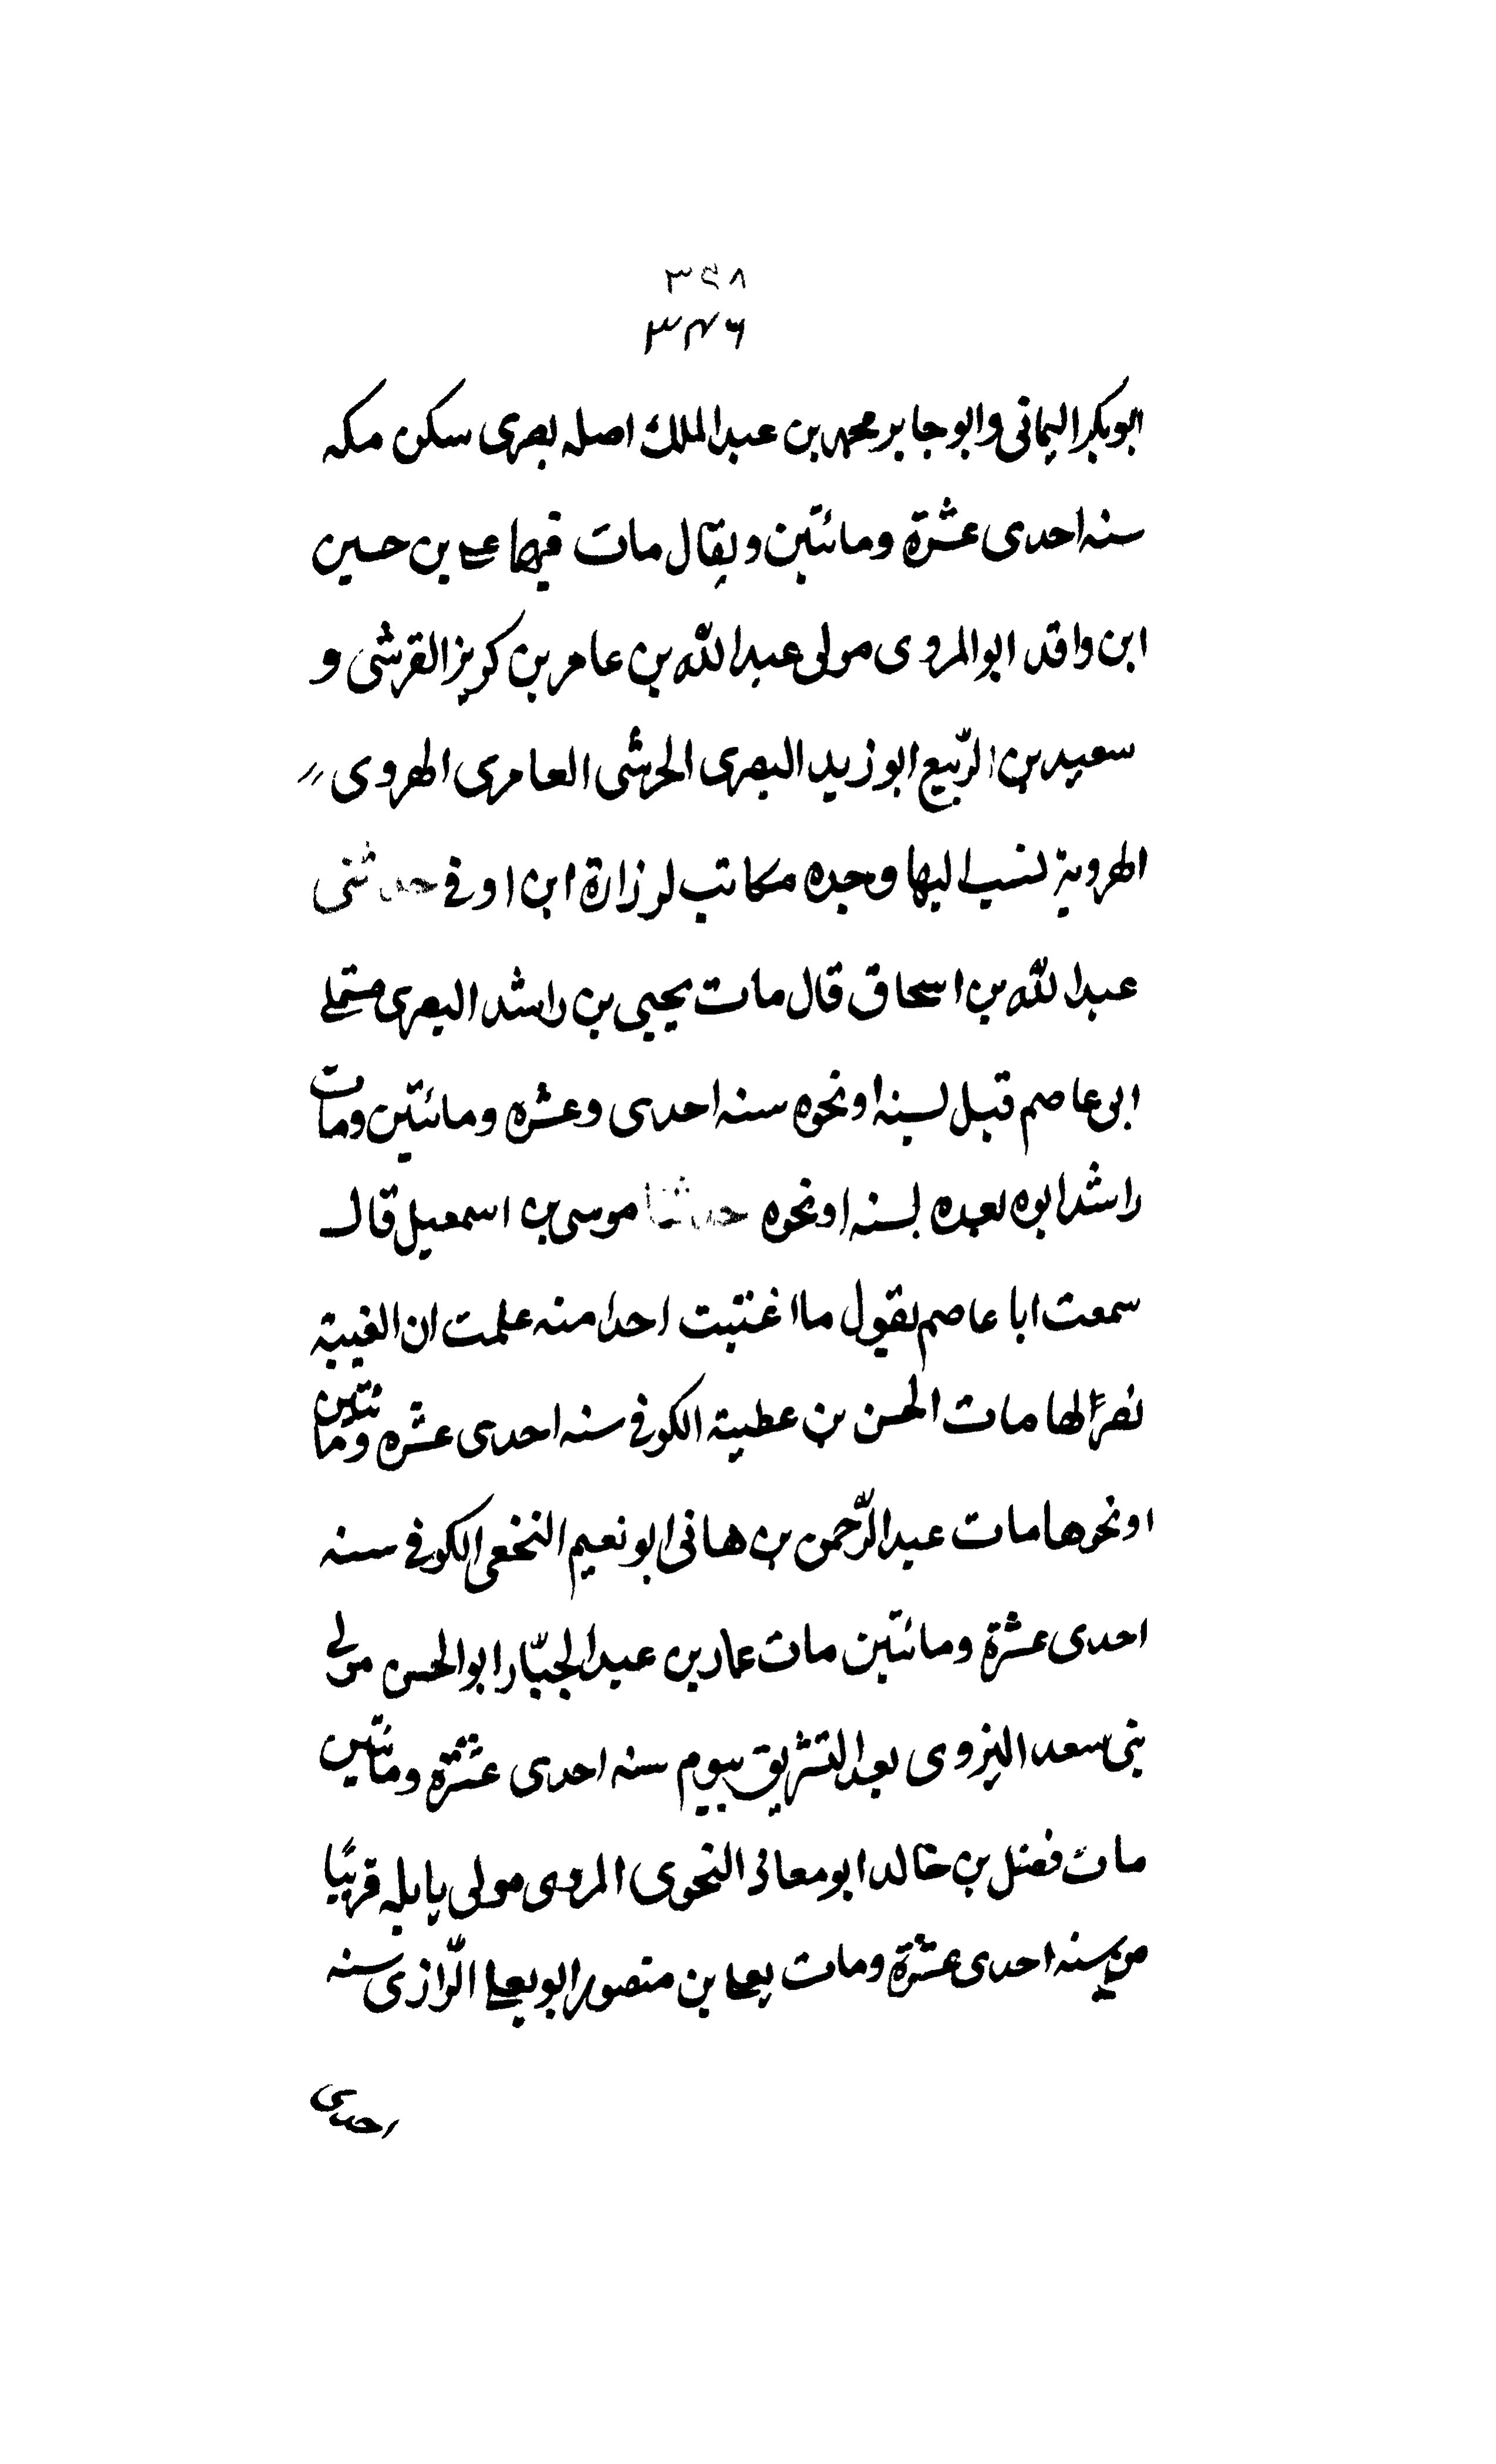 ٣٩٨
٣٤٦
ابوبكر اليمانى وابو جابر محمد بن عبد الملك اصله بصرى سكن مكه
سنه احدى عشرة ومائتين ويقال مات فيها على بن حسين
ابن واقد ابو المروى مولى عبد الله بن عامر بن كريز القرشى و
سعيد بن الرّبيع ابو زيد البصرى الحرشى العامرى الهروى
الهروية نسب اليها وجده مكاتب لزرارة ابن اوفى حدثنى
عبد الله بن اسحاق قال مات يحيى بن راشد البصرى مستملى
ابى عاصم قبل لسنه او نحوه سنه احدى وعشره ومائتين ومات
راشد ابوه بعده لسنه او نحوه حدثنا موسى بن اسمعيل قال
سمعت ابا عاصم يقول ما اغتبت احدا منه علمت ان الغيبة
تضرّ اهلها مات الحسن بن عطية الكوفى سنه احدى عشره ومائتين
او نحوها مات عبد الرّحمن بن هانى ابو نعيم النخعى الكوفى سنه
احدى عشرة ومائتين مات عمار بن عبد الجبّار ابو الحسن مولى
بنى سعد البزوى بعد التشريق بيوم سنه احدى عشرة ومائتين
مات فضل بن خالد ابو معاذ النحوى المروى مولى باهله قريبًا
من سنه احدى عشرة ومات يعلى بن منصور ابو يعلى الرّازى سنه
احدى